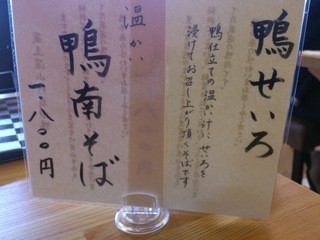 鴨せいろ
鴨仕立ての温かい汁にせいろを
浸けてお召し上がり頂くそばです
温かい
鴨南そば
一、八〇〇円